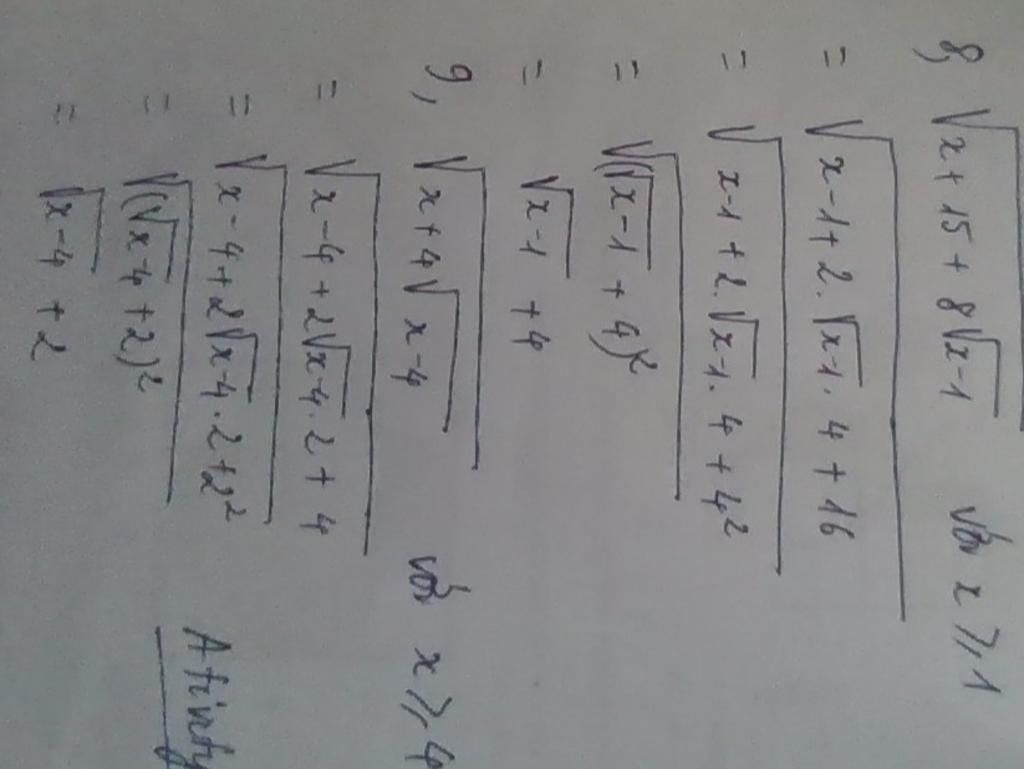 8, √(x+15+8√(x-1)) với x ⩾ 1
= √(x-1+2.√(x-1).4+16)
= √(x-1+2.√(x-1).4+4²)
= √((√(x-1)+4)²)
= √(x-1) +4
9, √(x+4√(x-4)) với x ⩾ 4
= √(x-4+2√(x-4).2+4)
= √(x-4+2√(x-4).2+2²)
= √((√(x-4)+2)²)
= √(x-4) +2